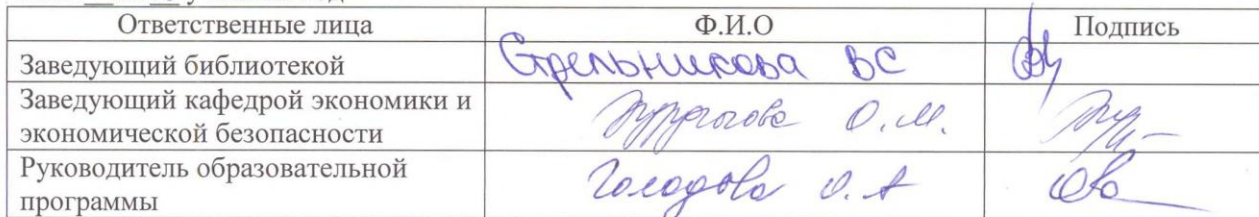 Ответственные лица Ф.И.О Подпись
Заведующий библиотекой Стрельникова ВС
Заведующий кафедрой экономики и
экономической безопасности О.М.
Руководитель образовательной
программы Голодова О.А